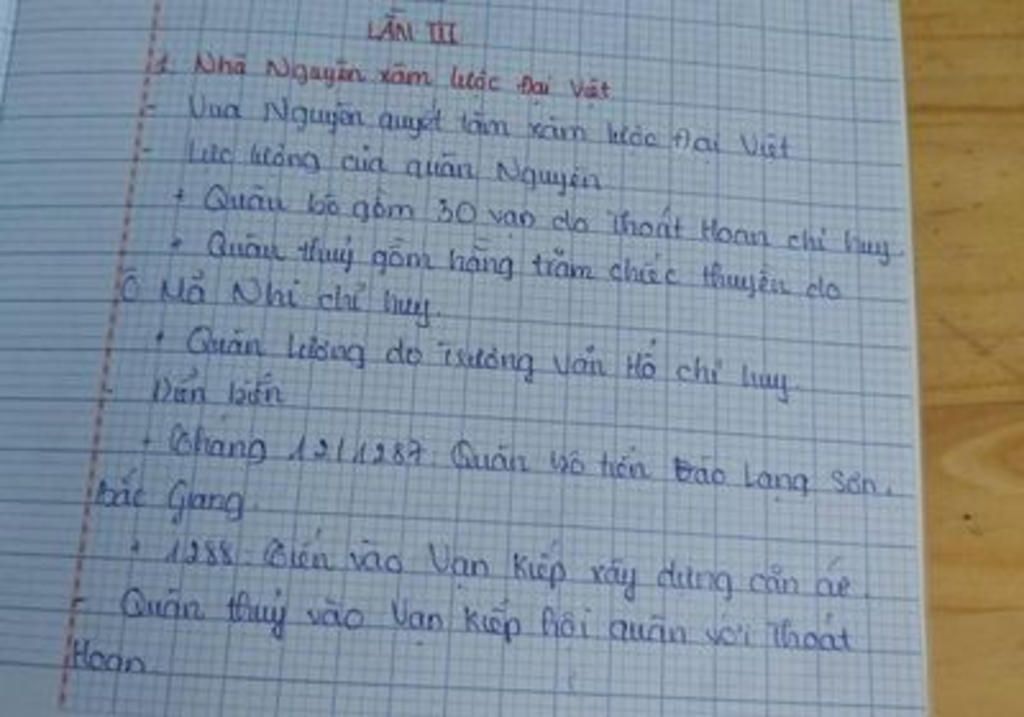 LẦN III
1. Nhà Nguyên xâm lược Đại Việt
- Vua Nguyên quyết tâm xâm lược Đại Việt
- Lực lượng của quân Nguyên
+ Quân bộ gồm 30 vạn do Thoát Hoan chỉ huy.
+ Quân thuỷ gồm hàng trăm chiếc thuyền do
Ô Mã Nhi chỉ huy.
+ Quân lương do Trương Văn Hổ chỉ huy.
- Diễn biến
+ Tháng 12/1287. Quân bộ tiến vào Lạng Sơn,
Bắc Giang.
+ 1288. Tiến vào Vạn Kiếp xây dựng căn cứ.
- Quân thuỷ vào Vạn Kiếp hội quân với Thoát
Hoan